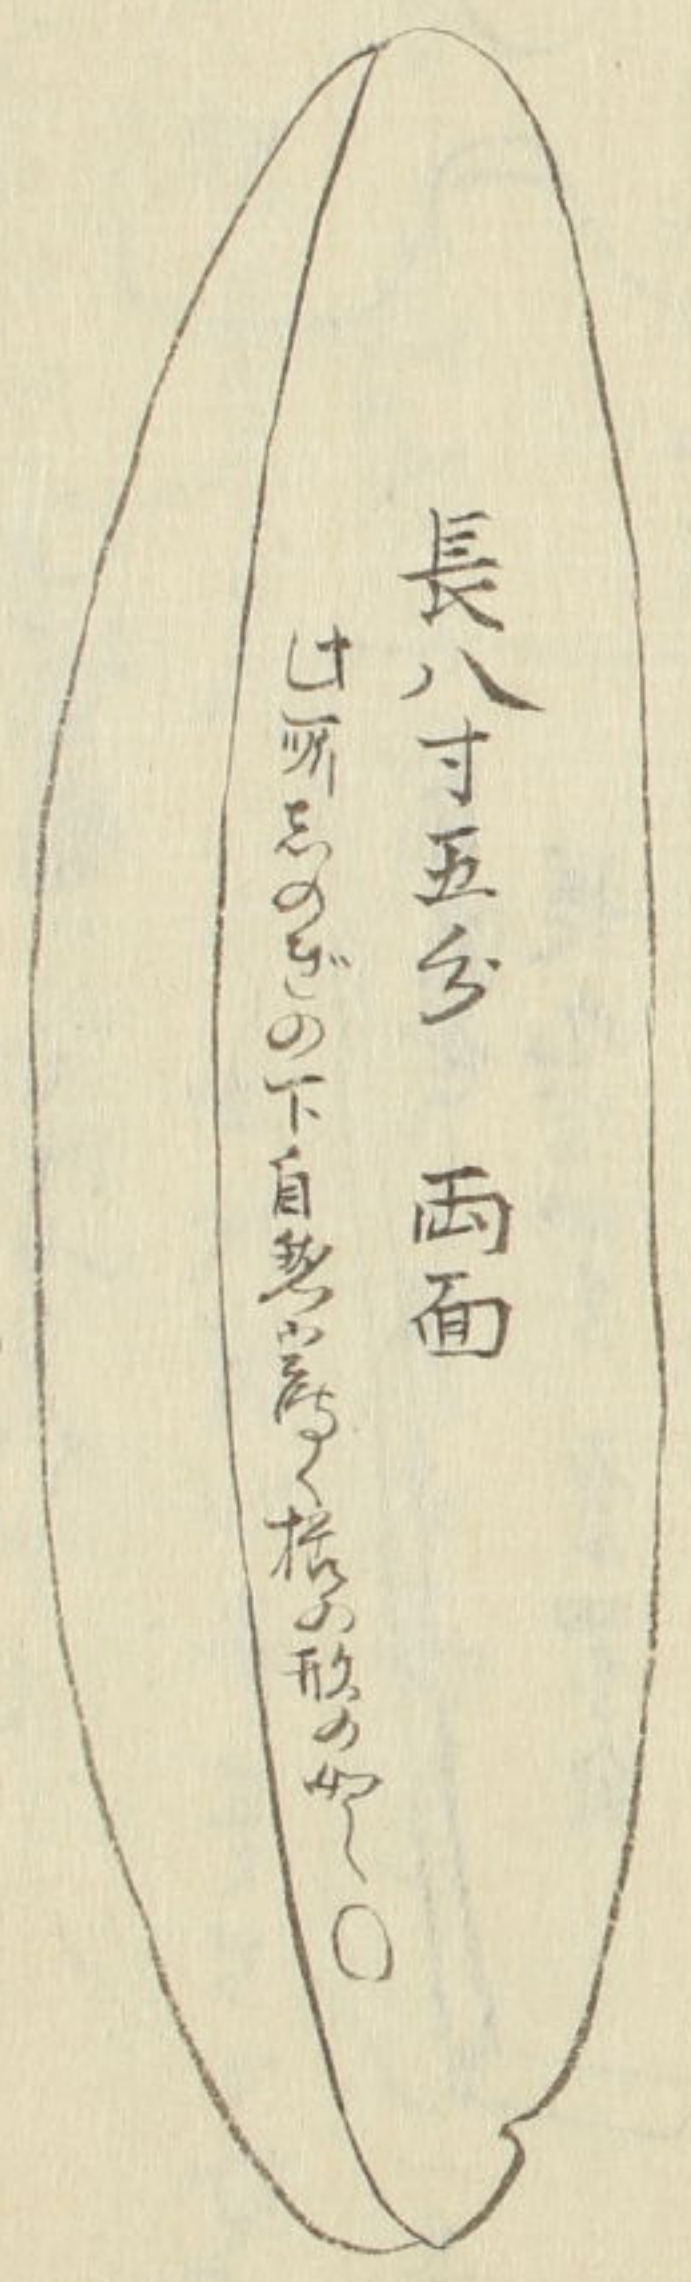 長八寸五分 両面
此所志のぎの下自然に く指の形の如し〇